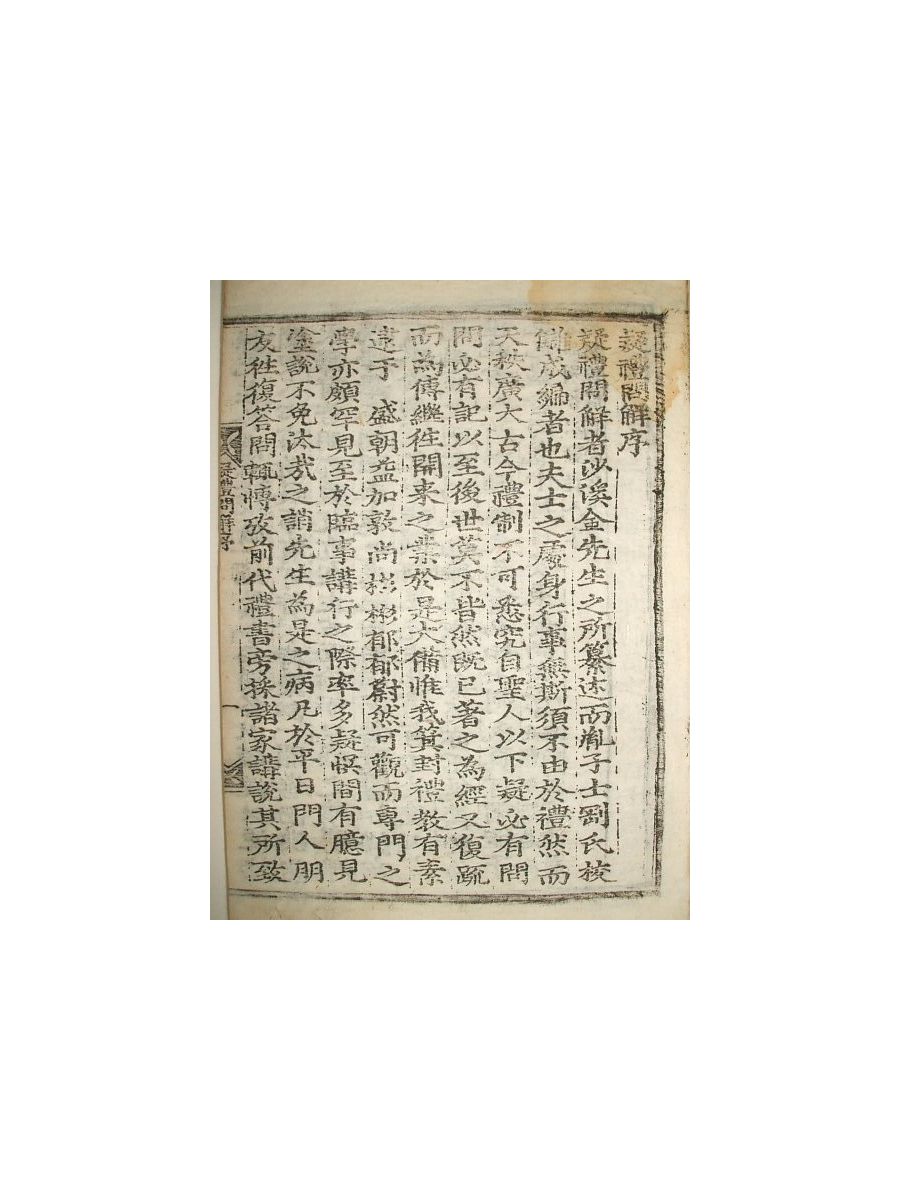 疑禮問解序
疑禮問解者沙溪金先生之所纂述而胤子士剛氏校
讎成編者也夫士之處身行事無斯須不由於禮然而
天秩廣大古今禮制不可悉究自聖人以下疑必有問
問必有記以至後世莫不皆然既已著之為經又復疏
而為傳繼徃開来之業於是大備惟我箕封禮教有素
逮于 盛朝益加敦尚彬彬郁郁蔚然可觀而專門之
學亦頗罕見至於臨事講行之際率多疑悞間有臆見
塗說不免汰哉之誚先生為是之病凡於平日門人朋
友徃復答問輒愽攷前代禮書旁採諸家講說其所致
疑禮問解序
一